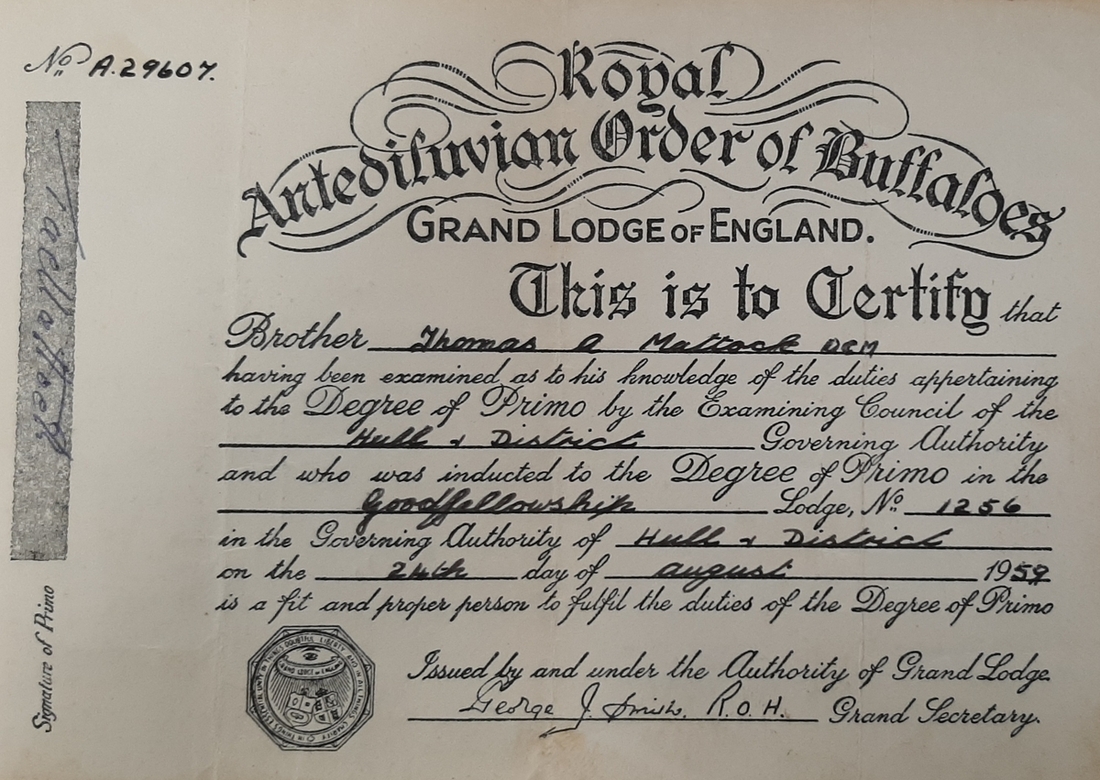 No A.29607.
Royal
Antediluvian Order of Buffaloes
GRAND LODGE OF ENGLAND.
This is to Certify that
Brother Thomas A Mattock DCM
having been examined as to his knowledge of the duties appertaining
to the Degree of Primo by the Examining Council of the
Hull & District Governing Authority
and who was inducted to the Degree of Primo in the
Goodfellowship Lodge, No 1256
in the Governing Authority of Hull & District
on the 24th day of august 1959
is a fit and proper person to fulfil the duties of the Degree of Primo
Issued by and under the Authority of Grand Lodge
George J. Smith. R.O.H. Grand Secretary.
Signature of Primo